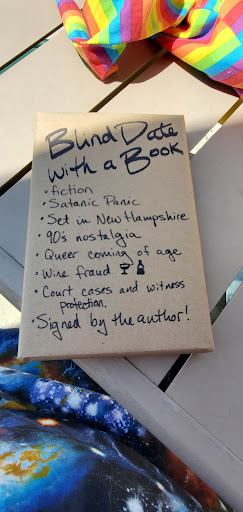 Blind Date
with a Book
• fiction
• Satanic Panic
• Set in New Hampshire
• 90's nostalgia
• Queer coming of age
• Wine fraud
• Court cases and witness
protection.
• Signed by the author!